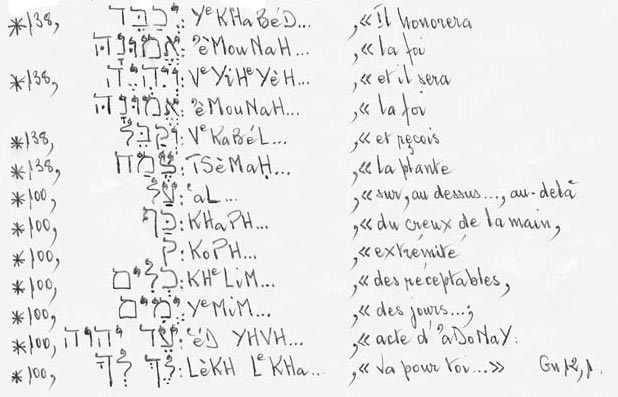 *138, יְכַבֵּד: YᵉKHaBéD... ,« Il honorera
אֱמוּנָה: ʾèMouNaH... ,« la foi
*138, וְיִהְיֶה: VᵉYiHᵉYèH... ,« et il sera
אֱמוּנָה: ʾèMouNaH... ,« la foi
*138, וְקַבֵּל: VᵉKaBéL... ,« et reçois
*138, צֶמַח: TSèMaḤ... ,« la plante
*100, עַל: ʿaL... ,« sur, au dessus..., au-delà
*100, כַף: KHaPH... ,« du creux de la main,
*100, ק: KoPH... ,« extrémité
*100, כְלִים: KHᵉLiM... ,« des réceptables,
*100, יְמִים: YᵉMiM... ,« des jours...;
*100, עֵד יהוה: ʿéD YHVH... ,« acte d'ʾaDoNaY.
*100, לֶךְ לְךָ: LèKH LᵉKHa... ,« Va pour toi...» Gn 12, 1.